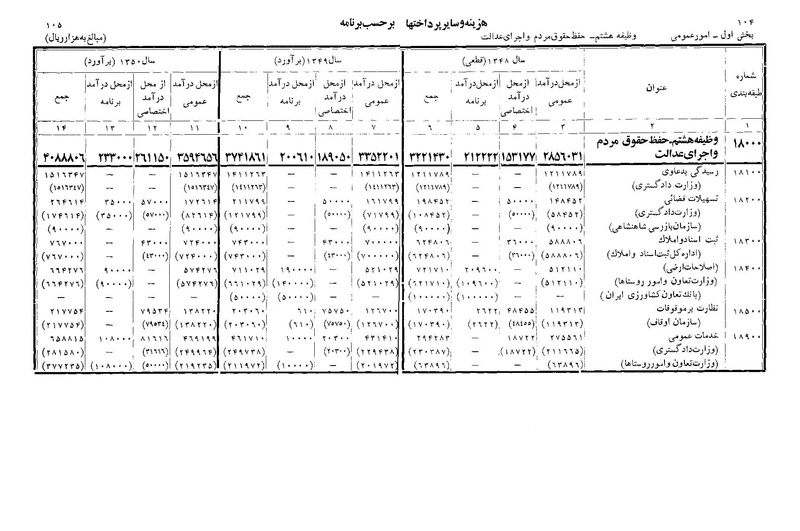 ۱۰۴ هزینه و سایر پرداختها بر حسب برنامه ۱۰۵
بخش اول - امور عمومی وظیفه هشتم - حفظ حقوق مردم و اجرای عدالت (مبالغ به هزار ریال)
سال ۱۳۴۸ (قطعی) سال ۱۳۴۹ (برآورد) سال ۱۳۵۰ (برآورد)
شماره طبقه بندی عنوان از محل درآمد عمومی از محل درآمد اختصاصی از محل درآمد برنامه جمع از محل درآمد عمومی از محل درآمد اختصاصی از محل درآمد برنامه جمع از محل درآمد عمومی از محل درآمد اختصاصی از محل درآمد برنامه جمع
۱ ۲ ۳ ۴ ۵ ۶ ۷ ۸ ۹ ۱۰ ۱۱ ۱۲ ۱۳ ۱۴
۱۸۰۰۰ وظیفه هشتم - حفظ حقوق مردم
و اجرای عدالت ۲۸۵۶۰۳۱ ۱۵۳۱۷۷ ۲۱۲۲۲۲ ۳۲۲۱۴۳۰ ۳۳۵۲۲۰۱ ۱۸۹۰۵۰ ۲۰۰۶۱۰ ۳۷۴۱۸۶۱ ۳۵۹۲۶۵۶ ۲۶۱۱۵۰ ۲۳۳۰۰۰ ۴۰۸۸۸۰۶
۱۸۱۰۰ رسیدگی بدعاوی ۱۲۱۱۷۸۹ — — ۱۲۱۱۷۸۹ ۱۴۱۱۲۶۳ — — ۱۴۱۱۲۶۳ ۱۵۱۶۳۴۷ — — ۱۵۱۶۳۴۷
(وزارت دادگستری) (۱۲۱۱۷۸۹) — — (۱۲۱۱۷۸۹) (۱۴۱۱۲۶۳) — — (۱۴۱۱۲۶۳) (۱۵۱۶۳۴۷) — — (۱۵۱۶۳۴۷)
۱۸۲۰۰ تسهیلات قضائی ۱۴۸۴۵۲ ۵۰۰۰۰ — ۱۹۸۴۵۲ ۱۶۱۷۹۹ ۵۰۰۰۰ — ۲۱۱۷۹۹ ۱۷۲۶۱۴ ۵۷۰۰۰ ۳۵۰۰۰ ۲۶۴۶۱۴
(وزارت دادگستری) (۵۸۴۵۲) (۵۰۰۰۰) — (۱۰۸۴۵۲) (۷۱۷۹۹) (۵۰۰۰۰) — (۱۲۱۷۹۹) (۸۲۶۱۴) (۵۷۰۰۰) (۳۵۰۰۰) (۱۷۴۶۱۴)
(سازمان بازرسی شاهنشاهی) (۹۰۰۰۰) — — (۹۰۰۰۰) (۹۰۰۰۰) — — (۹۰۰۰۰) (۹۰۰۰۰) — — (۹۰۰۰۰)
۱۸۳۰۰ ثبت اسناد و املاک ۵۸۸۸۰۶ ۳۶۰۰۰ — ۶۲۴۸۰۶ ۷۰۰۰۰۰ ۴۳۰۰۰ — ۷۴۳۰۰۰ ۷۲۴۰۰۰ ۴۳۰۰۰ — ۷۶۷۰۰۰
(اداره کل ثبت اسناد و املاک) (۵۸۸۸۰۶) (۳۶۰۰۰) — (۶۲۴۸۰۶) (۷۰۰۰۰۰) (۴۳۰۰۰) — (۷۴۳۰۰۰) (۷۲۴۰۰۰) (۴۳۰۰۰) — (۷۶۷۰۰۰)
۱۸۴۰۰ (اصلاحات ارضی) ۵۱۲۱۱۰ — ۲۰۹۶۰۰ ۷۲۱۷۱۰ ۵۲۱۰۲۹ — ۱۹۰۰۰۰ ۷۱۱۰۲۹ ۵۷۴۲۷۶ — ۹۰۰۰۰ ۶۶۴۲۷۶
(وزارت تعاون و امور روستاها) (۵۱۲۱۱۰) — (۱۰۹۶۰۰) (۶۲۱۷۱۰) (۵۲۱۰۲۹) — (۱۴۰۰۰۰) (۶۶۱۰۲۹) (۵۷۴۲۷۶) — (۹۰۰۰۰) (۶۶۴۲۷۶)
(بانک تعاون کشاورزی ایران) — — (۱۰۰۰۰۰) (۱۰۰۰۰۰) — — (۵۰۰۰۰) (۵۰۰۰۰) — — — —
۱۸۵۰۰ نظارت بر موقوفات ۱۱۹۳۱۳ ۴۸۴۵۵ ۲۶۲۲ ۱۷۰۳۹۰ ۱۲۶۷۰۰ ۷۵۷۵۰ ۶۱۰ ۲۰۳۰۶۰ ۱۳۸۲۲۰ ۷۹۵۳۴ — ۲۱۷۷۵۴
(سازمان اوقاف) (۱۱۹۳۱۳) (۴۸۴۵۵) (۲۶۲۲) (۱۷۰۳۹۰) (۱۲۶۷۰۰) (۷۵۷۵۰) (۶۱۰) (۲۰۳۰۶۰) (۱۳۸۲۲۰) (۷۹۵۳۴) — (۲۱۷۷۵۴)
۱۸۹۰۰ خدمات عمومی ۲۷۵۵۶۱ ۱۸۷۲۲ — ۲۹۴۲۸۳ ۴۳۱۴۱۰ ۲۰۳۰۰ ۱۰۰۰۰ ۴۶۱۷۱۰ ۴۶۹۱۹۹ ۸۱۶۱۶ ۱۰۸۰۰۰ ۶۵۸۸۱۵
(وزارت دادگستری) (۲۱۱۶۶۵) (۱۸۷۲۲) — (۲۳۰۳۸۷) (۲۲۹۴۳۸) (۲۰۳۰۰) — (۲۴۹۷۳۸) (۲۴۹۹۶۴) (۳۱۶۱۶) — (۲۸۱۵۸۰)
(وزارت تعاون و امور روستاها) (۶۳۸۹۶) — — (۶۳۸۹۶) (۲۰۱۹۷۲) — (۱۰۰۰۰) (۲۱۱۹۷۲) (۲۱۹۲۳۵) (۵۰۰۰۰) (۱۰۸۰۰۰) (۳۷۷۲۳۵)